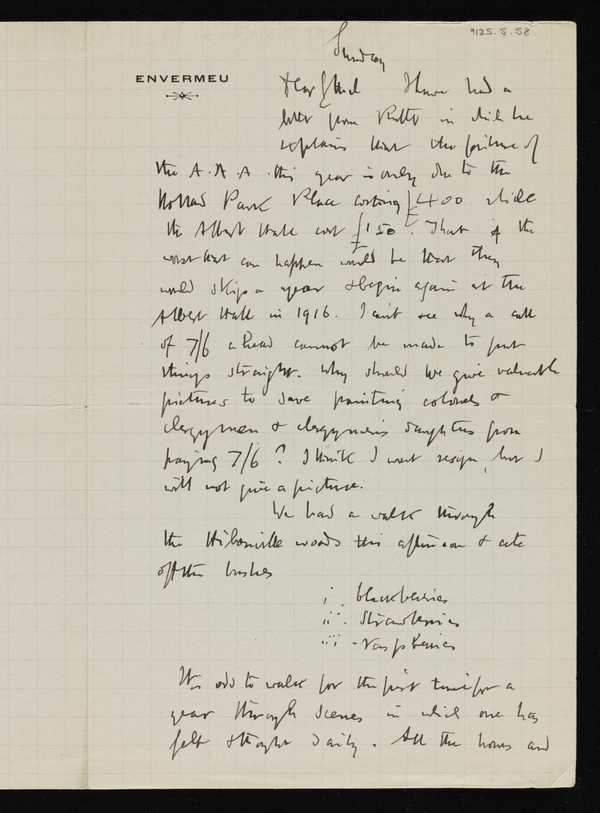 9125.5.58
Sunday
ENVERMEU
Dear Ethel I have had a
letter from Rutter in which he
explains that the failure of
the A.A.A. this year is only due to the
Holland Park Place costing £400 while
the Albert Hall cost £150. That if the
worst that can happen would be that they
would skip a year & begin again at the
Albert Hall in 1916. I can't see why a call
of 7/6 a head cannot be made to put
things straight. Why should we give valuable
pictures to save painting colonels &
clergymen & clergymen's daughters from
paying 7/6? I think I wont resign, but I
will not give a picture.
We had a walk through
the Hibouville woods this afternoon & ate
off the bushes
i. blackberries
ii. strawberries
iii. raspberries
It is odd to walk for the first time for a
year through scenes in which one has
felt & thought daily. All the hours and